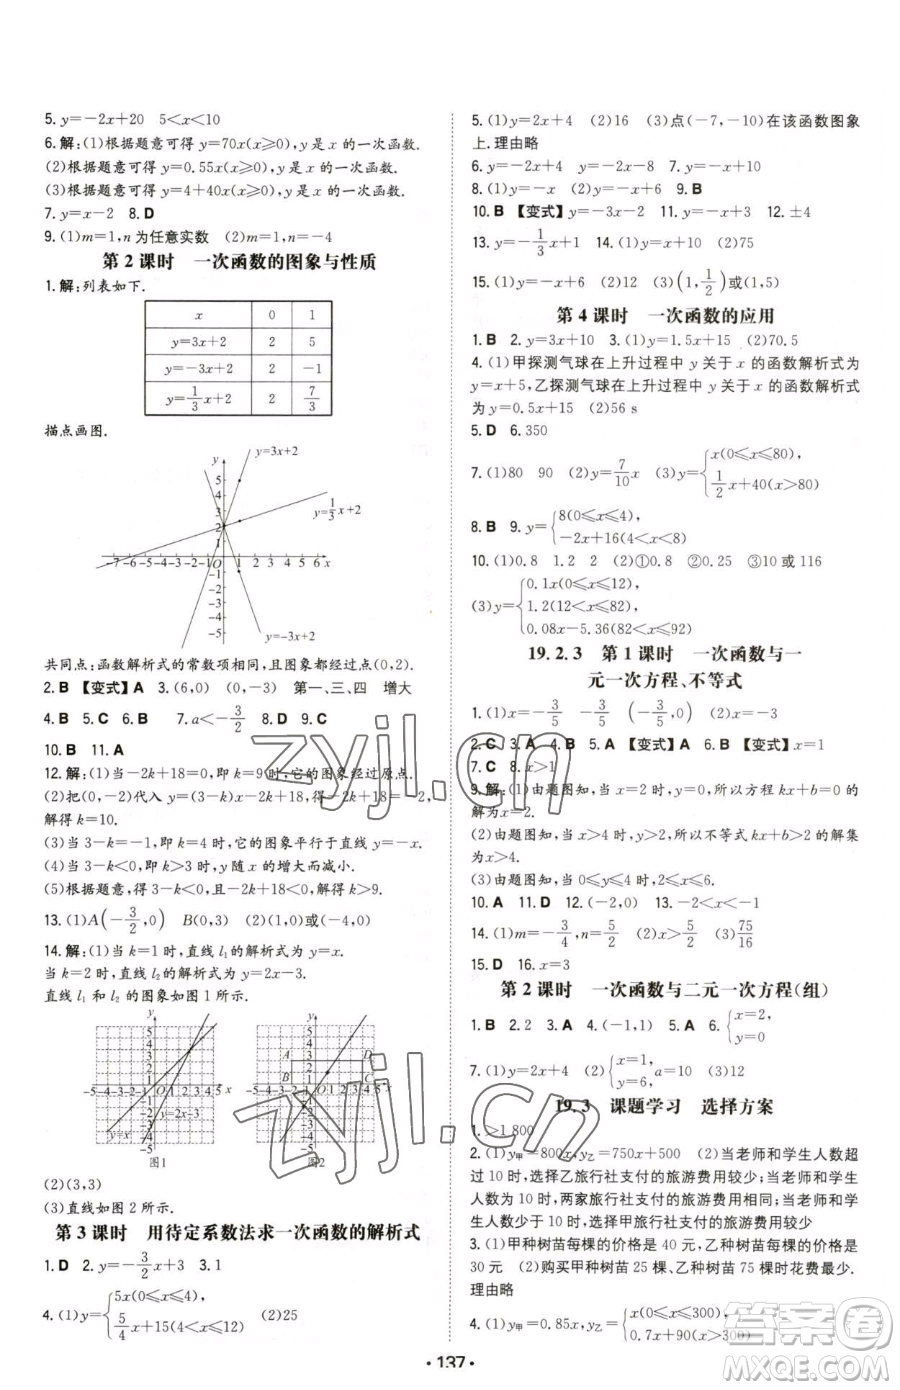 5. y=-x+20　5<x<10
6. 解:(1)根据题意可得 y=70x(x⩾0),y 是 x 的一次函数.
(2)根据题意可得 y=0.55x(x⩾0),y 是 x 的一次函数.
(3)根据题意可得 y=4+40x(x⩾0),y 是 x 的一次函数.
7. y=x-2　8. D
9. (1)m=1,n 为任意实数　(2)m=1,n=-4
第 2 课时　一次函数的图象与性质
1. 解:列表如下.
x　0　1
y=3x+2　2　5
y=-3x+2　2　-1
y=1/3x+2　2　7/3
描点画图.
y=3x+2
y=1/3x+2
y=-3x+2
共同点:函数解析式的常数项相同,且图象都经过点(0,2).
2. B 【变式】A　3. (6,0)　(0,-3)　第一、三、四　增大
4. B　5. C　6. B　7. a<-3/2　8. D　9. C
10. B　11. A
12. 解:(1)当-2k+18=0,即 k=9 时,它的图象经过原点.
(2)把(0,-2)代入 y=(3-k)x-2k+18,得-2k+18=-2,
解得 k=10.
(3)当 3-k=-1,即 k=4 时,它的图象平行于直线 y=-x.
(4)当 3-k<0,即 k>3 时,y 随 x 的增大而减小.
(5)根据题意,得-2k+18<0且 3-k<0,解得 k>9.
13. (1)A(-3/2,0)　B(0,3)　(2)(1,0)或(-4,0)
14. 解:(1)当 k=1 时,直线 l1 的解析式为 y=x.
当 k=2 时,直线 l2 的解析式为 y=2x-3.
直线 l1 和 l2 的图象如图 1 所示.
图1　图2
(2)(3,3)
(3)直线如图 2 所示.
第 3 课时　用待定系数法求一次函数的解析式
1. D　2. y=-3/2x+3　3. 1
4. (1)y={5x(0⩽x⩽4),
5/4x+15(4<x⩽12)　(2)25
5. (1)y=2x+4　(2)16　(3)点(-7,-10)在该函数图象
上.理由略
6. y=-2x+4　y=-2x-8　7. y=2x
8. (1)y=-x　(2)y=-x+6　9. B
10. B 【变式】y=-3x-2　11. y=2x-1　12. ±4
13. y=-1/3x+1　14. (1)y=5x　(2)75
15. (1)y=-2x+6　(2)3　(3)(1,1/2)或(1,5)
第 4 课时　一次函数的应用
1. B　2. y=3x+10　3. (1)y=1.5x+4.5　(2)70.5
4. (1)甲探测气球在上升过程中 y 关于 x 的函数解析式为
y=x+5,乙探测气球在上升过程中 y 关于 x 的函数解析式
为 y=0.5x+15　(2)56 s
5. D　6. 350
7. (1)80　90　(2)y=7/10x　(3)y={x(0⩽x⩽80),
1/2x+40(x>80)
8. B　9. y={8(0⩽x⩽4),
-2x+16(4<x<8)
10. (1)0.8　1.2　2　(2)①0.8　②0.25　③10 或 116
(3)y={0.1x(0⩽x⩽12),
1.2(12<x⩽82),
0.08x-5.36(82<x⩽92)
19.2.3　第 1 课时　一次函数与一
元一次方程、不等式
1. (1)x=-3/5　-3/5　(-3/5,0)　(2)x=-3
2. C　3. A　4. A　5. A 【变式】A　6. B 【变式】x=1
7. C　8. x>1
9. 解:(1)由题图知,当 x=2 时,y=0,所以方程 kx+b=0的
解为x=2.
(2)由题图知,当 x>4 时,y>2,所以不等式 kx+b>2 的解集
为 x>4.
(3)由题图知,当 0⩽y⩽2 时,2⩽x⩽4
10. A　11. D　12. (-2,0)　13. -2<x<-1
14. (1)m=-3/4,n=5/2　(2)x>5/2　(3)75/16
15. D　16. x=3
第 2 课时　一次函数与二元一次方程(组)
1. B　2. 2　3. A　4. (-1,1)　5. A　6. {x=2,
y=0
7. (1)y=2x+4　(2){x=1,
y=6,　a=10　(3)y=-6x
19.3　课题学习　选择方案
1. >1 800
2. (1)y甲=1 000x　y乙=750x+500　(2)当老师和学生人数
超过 10 时,选择乙旅行社支付的旅游费用较少;当老师和学
生人数为 10 时,两家旅行社支付的旅游费用相同;当老师和学生
人数少于 10 时,选择甲旅行社支付的旅游费用较少
3. (1)甲种树苗每棵的价格是 40 元,乙种树苗每棵的价格是
10 元　(2)购买甲种树苗 25 棵、乙种树苗 75 棵时花费最少.
理由略
4. (1)y甲=0.85x,y乙={x(0⩽x⩽300),
0.7x+90(x>300)
• 137 •
zyjl.cn
zyjl.cn
答案圈
MXQE.COM